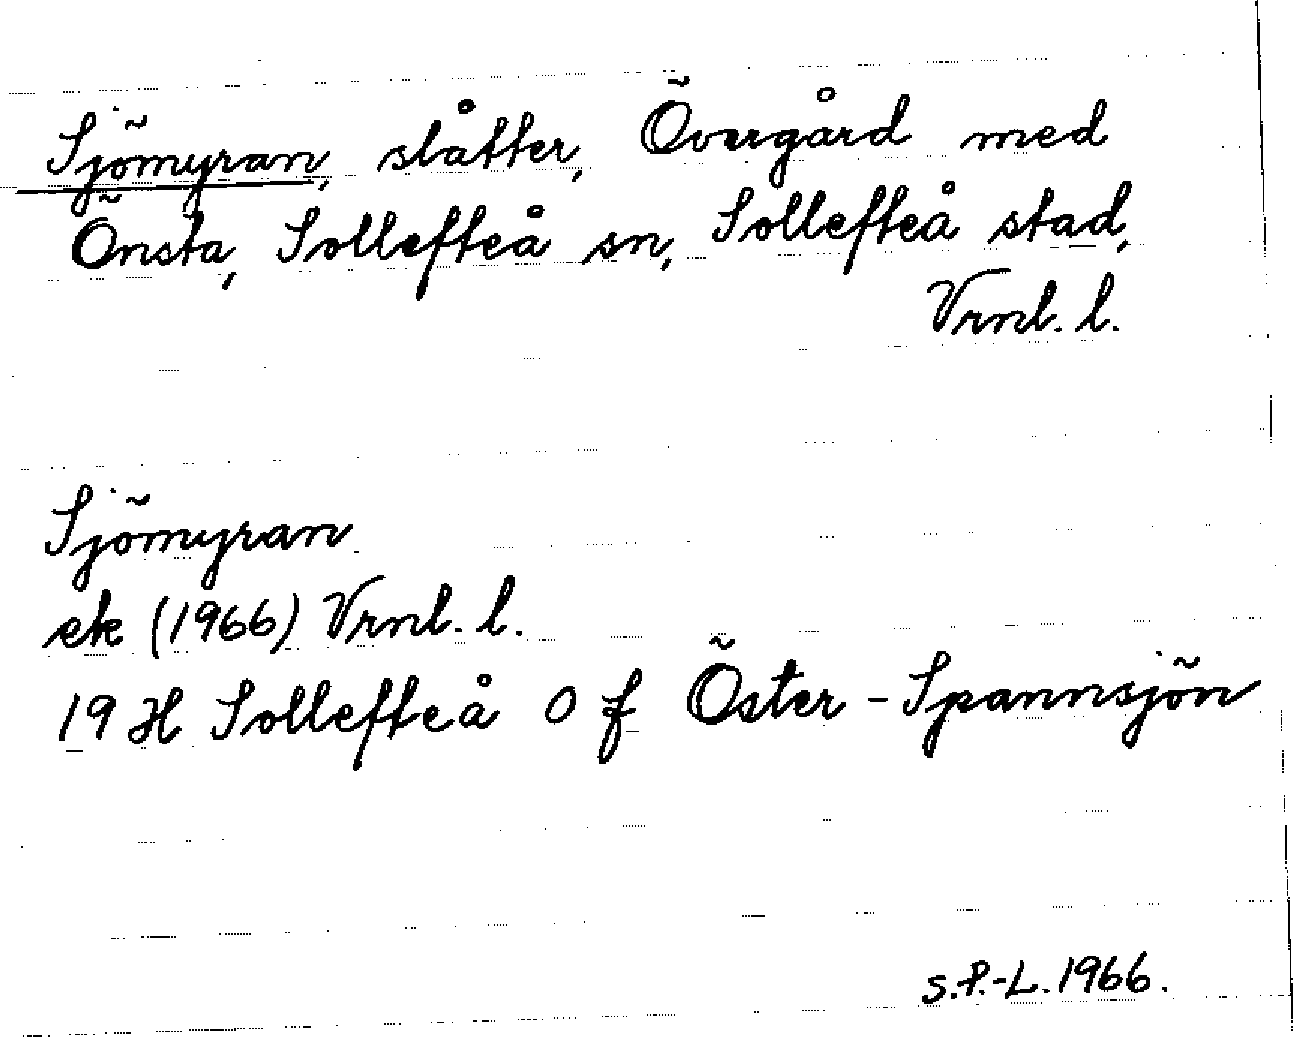 Sjömyran, slåtter, Övergård med
Önsta, Sollefteå sn, Sollefteå stad,
Vrnl. l.
Sjömyran
ek (1966) Vrnl. l.
19 H Sollefteå O f Öster-Spannsjön
S.P.-L. 1966.